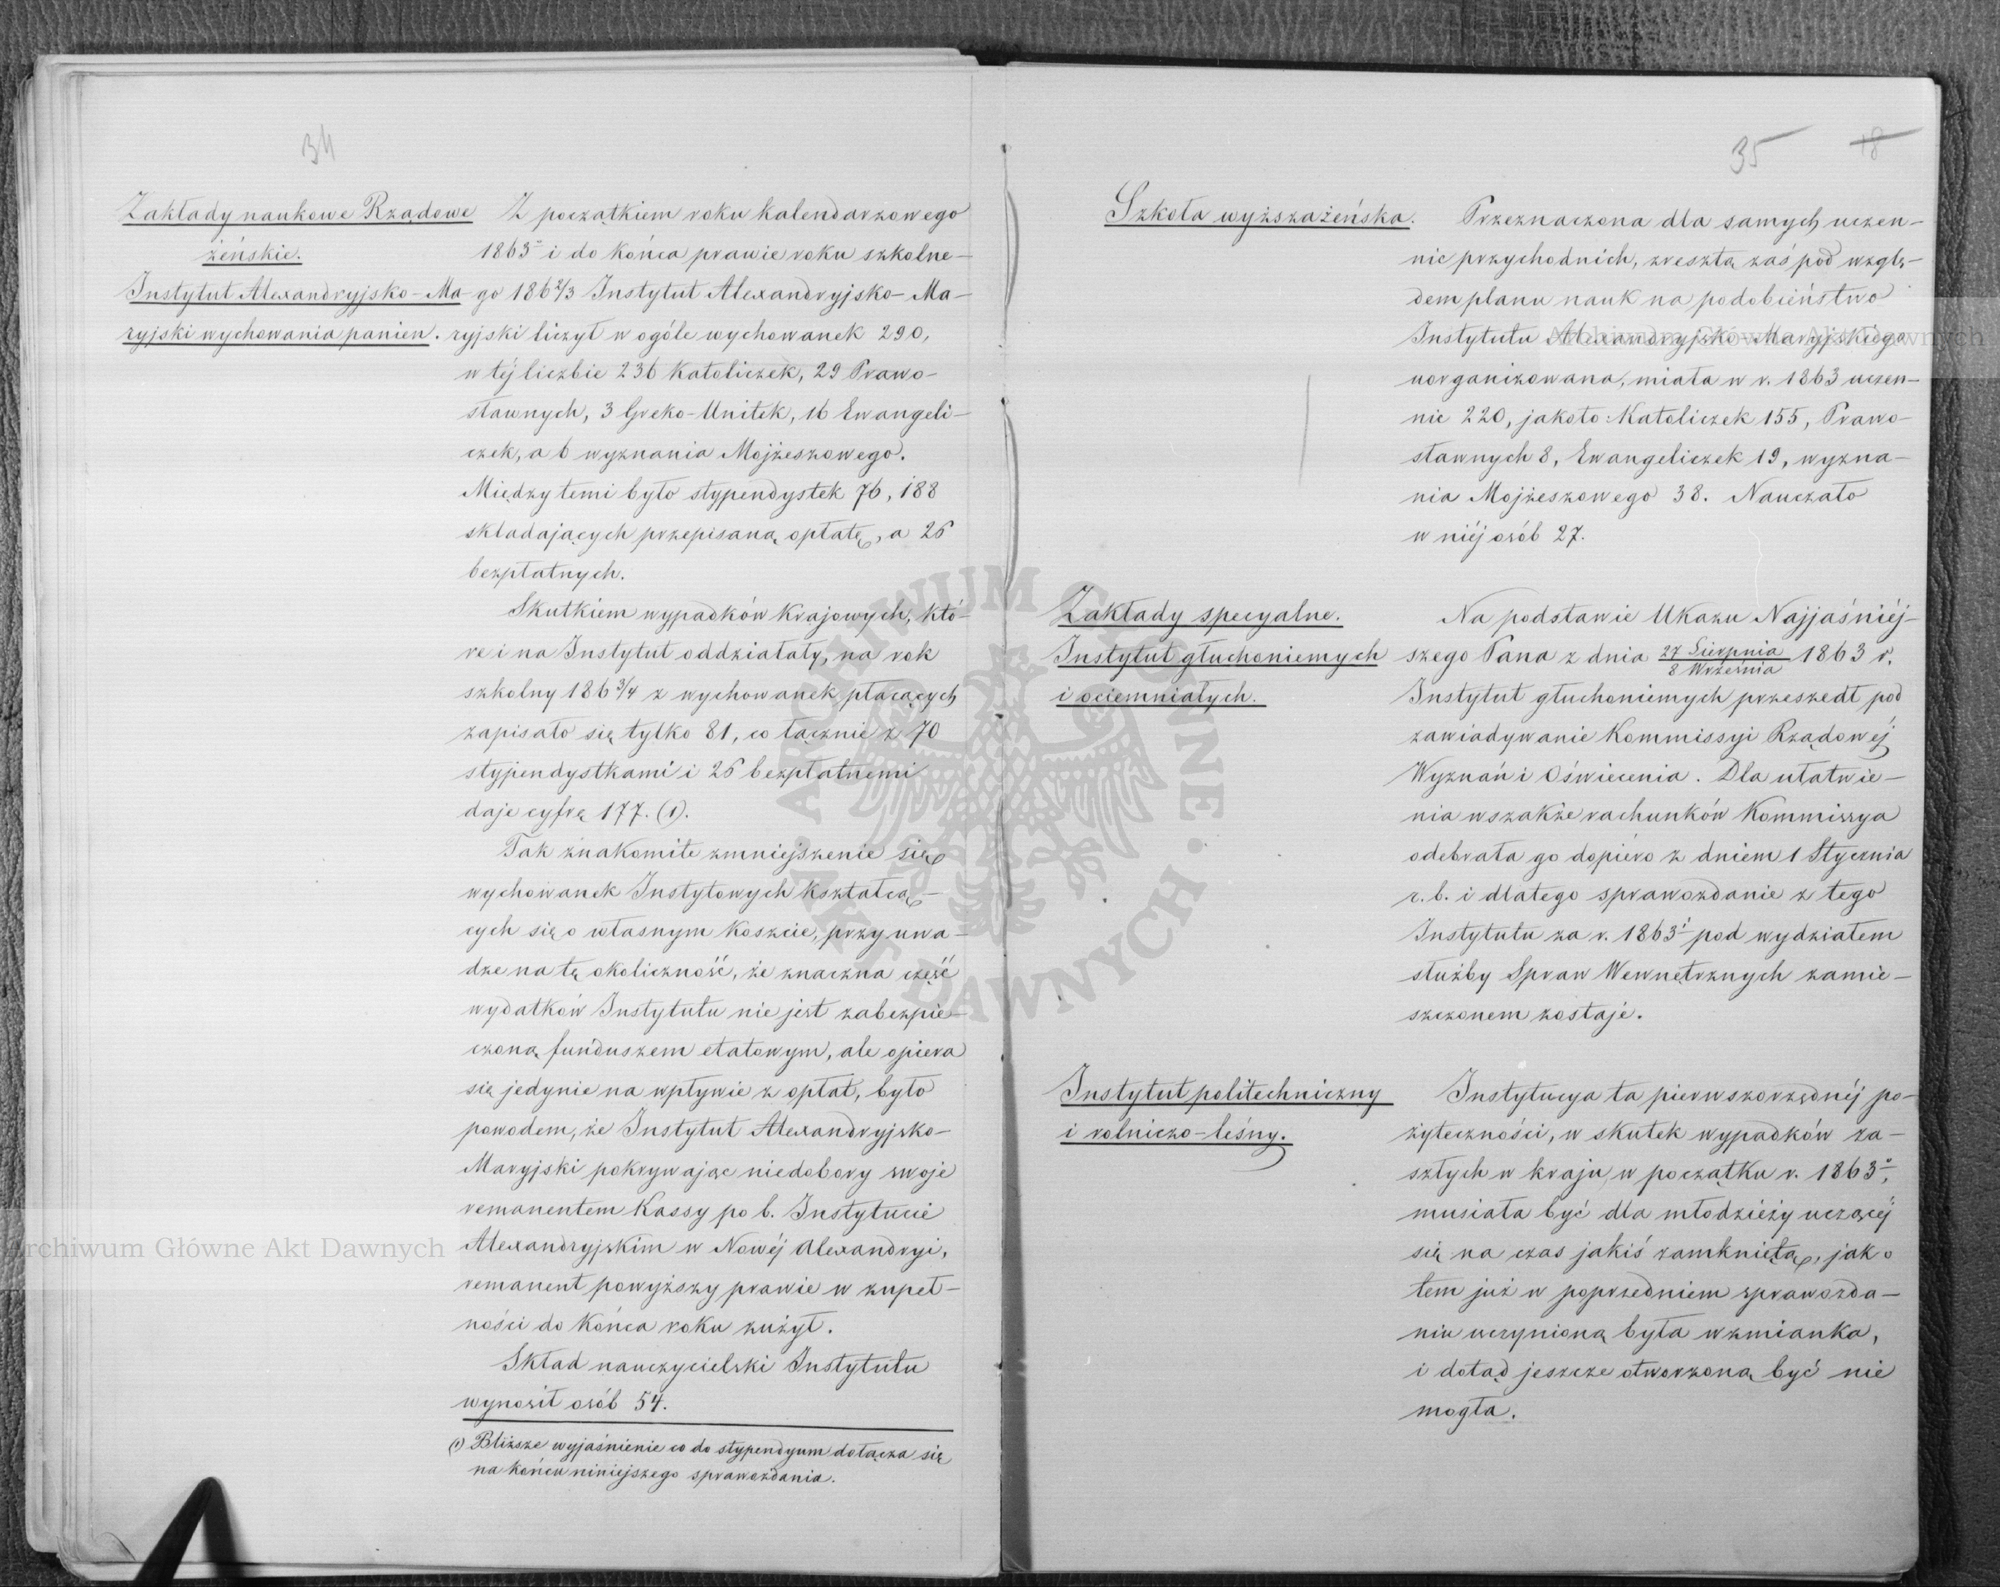 34
Zakłady naukowe Rządowe
żeńskie.
Instytut Alexandryjsko-Ma-
ryjski wychowania panien.
Z początkiem roku kalendarzowego
1863º i do końca prawie roku szkolne-
go 1862/3 Instytut Alexandryjsko-Ma-
ryjski liczył w ogóle wychowanek 290,
w téj liczbie 236 Katoliczek, 29 Prawo-
sławnych, 3 Greko-Unitek, 16 Ewangeli-
czek, a 6 wyznania Mojżeszowego.
Między temi było stypendystek 76, 188
składających przepisaną opłatę, a 26
bezpłatnych.
Skutkiem wypadków krajowych, któ-
re i na Instytut oddziałały, na rok
szkolny 1863/4 z wychowanek płacących
zapisało się tylko 81, co łącznie z 70
stypendystkami i 26 bezpłatnemi
daje cyfrę 177. (1).
Tak znakomite zmniejszenie się
wychowanek Instytowych kształcą-
cych się o własnym koszcie, przy uwa-
dze na tę okoliczność, że znaczna część
wydatków Instytutu nie jest zabezpie-
czoną funduszem etatowym, ale opiera
się jedynie na wpływie z opłat, było
powodem, że Instytut Alexandryjsko-
Maryjski pokrywając niedobory swoje
remanentem Kassy po b. Instytucie
Alexandryjskim w Nowéj Alexandryi,
remanent powyższy prawie w zupeł-
ności do końca roku zużył.
Skład nauczycielski Instytutu
wynosił osób 54.
(1) Bliższe wyjaśnienie co do stypendyum dołącza się
na końcu niniejszego sprawozdania.
35 18
Szkoła wyższa żeńska.
Przeznaczona dla samych uczen-
nic przychodnich, zresztą zaś pod wzglę-
dem planu nauk na podobieństwo
Instytutu Alexandryjsko-Maryjskiego
uorganizowana, miała w r. 1863 uczen-
nic 220, jakoto: Katoliczek 155, Prawo-
sławnych 8, Ewangeliczek 19, wyzna-
nia Mojżeszowego 38. Nauczało
w niéj osób 27.
Zakłady specyalne.
Instytut głuchoniemych
i ociemniałych.
Na podstawie Ukazu Najjaśniéj-
szego Pana z dnia 27 Sierpnia / 8 Września 1863 r.
Instytut głuchoniemych przeszedł pod
zawiadywanie Kommissyi Rządowéj
Wyznań i Oświecenia. Dla ułatwie-
nia wszakże rachunków Kommissya
odebrała go dopiero z dniem 1 Stycznia
r. b. i dlatego sprawozdanie z tego
Instytutu za r. 1863 pod wydziałem
służby Spraw Wewnętrznych zamie-
szczonem zostaje.
Instytut politechniczny
i rolniczo-leśny.
Instytucya ta pierwszorzędnéj po-
żyteczności, w skutek wypadków za-
szłych w kraju, w początku r. 1863º,
musiała być dla młodzieży uczącéj
się na czas jakiś zamkniętą, jak o
tem już w poprzedniem sprawozda-
niu uczynioną była wzmianka,
i dotąd jeszcze otworzoną być nie
mogła.
Archiwum Główne Akt Dawnych
Archiwum Główne Akt Dawnych
ARCHIWUM GŁÓWNE AKT DAWNYCH